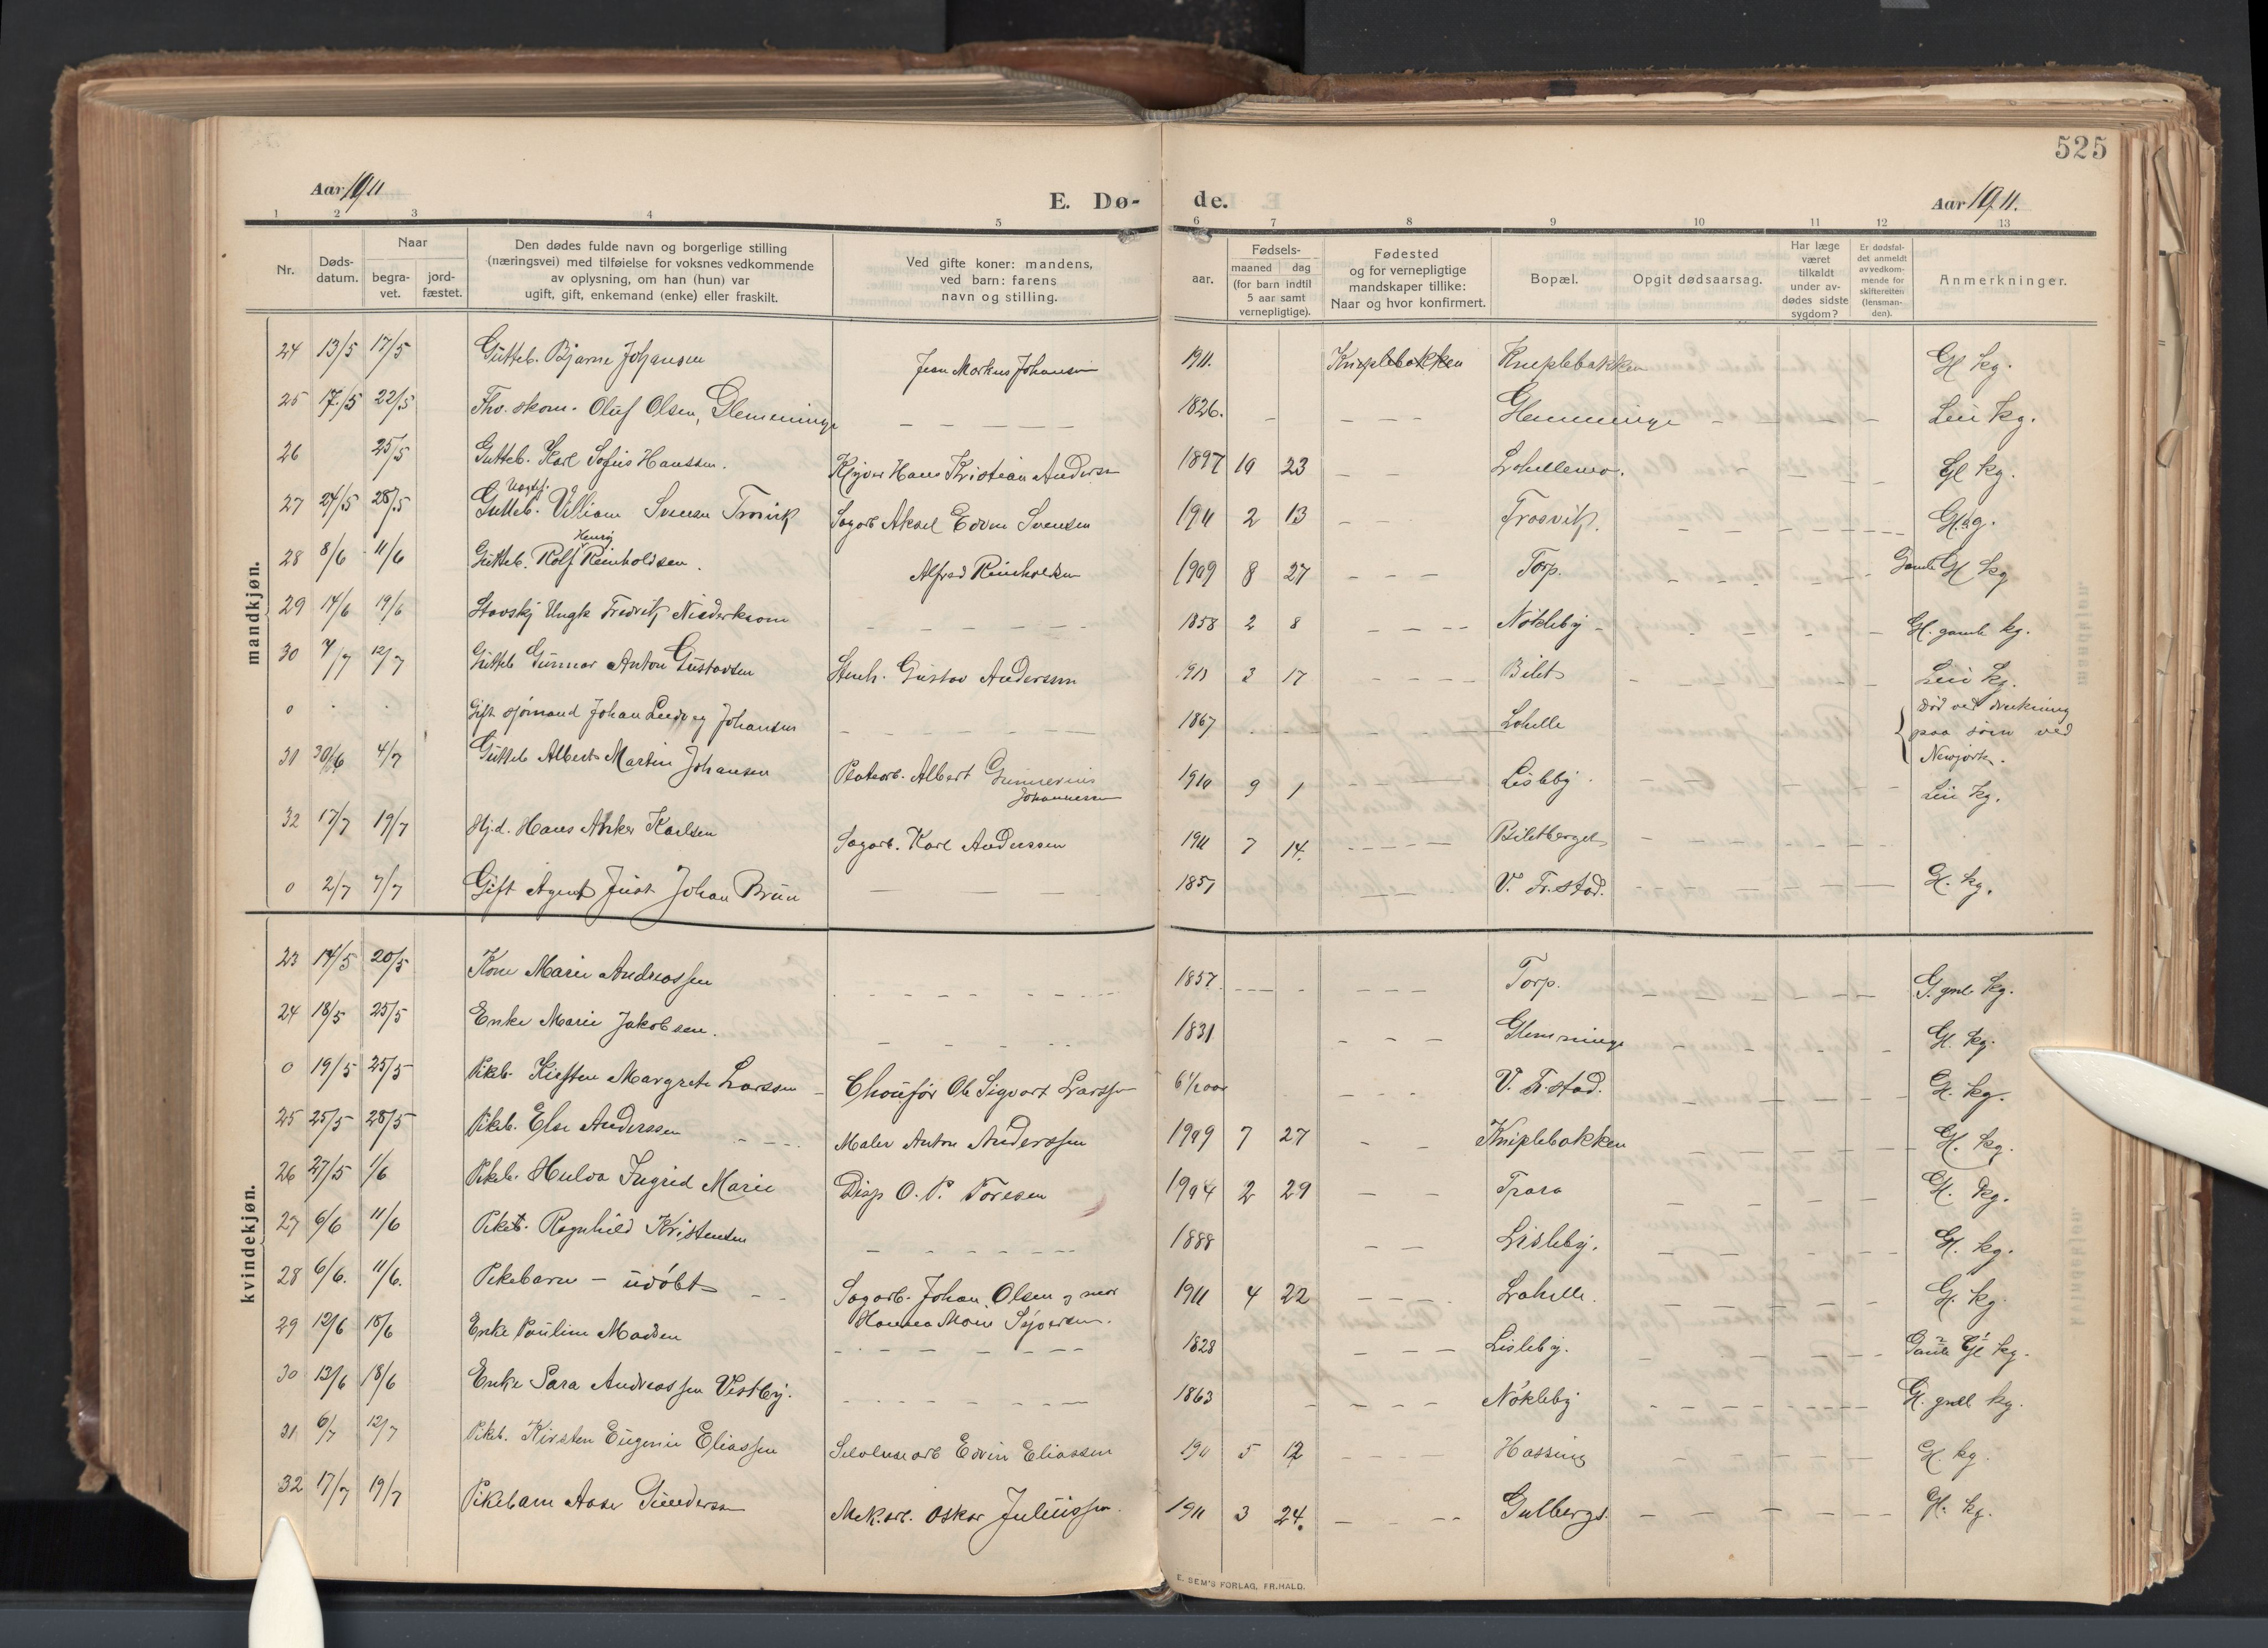 525
Aar 1911
E. Dø-
de.
Aar 1911.
1 2 3 4 5 6 7 8 9 10 11 12 13
Nr.
Døds-
datum.
Naar
begra-
vet.
jord-
fæstet.
Den dødes fulde navn og borgerlige stilling
(næringsvei) med tilføielse for voksnes vedkommende
av oplysning, om han (hun) var
ugift, gift, enkemand (enke) eller fraskilt.
Ved gifte koner: mandens,
ved barn: farens
navn og stilling.
aar.
Fødsels-
maaned dag
(for barn indtil
5 aar samt
vernepligtige).
Fødested
og for vernepligtige
mandskaper tillike:
Naar og hvor konfirmert.
Bopæl.
Opgit dødsaarsag.
Har læge
været
tilkaldt
under av-
dødes sidste
sygdom?
Er dødsfal-
det anmeldt
av vedkom-
mende for
skifteretten
(lensman-
den).
Anmerkninger.
mandkjøn.
24 13/5 17/5 Gutteb. Bjarne Johansen Jean Markus Johansen 1911. Kniplebakken Kniplebakken Gl kg.
25 17/5 22/5 Fhv. skom. Oluf Olsen, Glemminge 1826. Glemminge Leie kg.
26 25/5 Gutteb. Karl Sofus Hanssen. Hans Kristian Anderssen 1897 10 23 Lahellemo. Gl kg.
27 24/5 28/5 Gutteb. Villiam Svensen Trosvik Sagarb Aksel Edvin Svensen 1911 2 13 Trosvik. Gl. kg.
28 8/6 11/6 Gutteb. Rolf Henry Reinholdsen. Alfred Reinholdsen 1909 8 27 Torp. Gamle Gl kg
29 14/6 19/6 Fredrik 1858 2 8 Nøkleby Gl. gamle kg.
30 7/7 12/7 Gutteb Gunnar Anton Gustavsen Stenh. Gustav Anderssen 3 17 Bilet Leie kg.
0 Gift sjømand Johan Ludvig Johansen 1867 Lahelle Død ved drukning
paa søen ved
Newjork.
31 30/6 4/7 Gutteb Albert Martin Johansen Platearb. Albert Gunnerius
Johannessen 1910 9 1 Lisleby Leie kg.
32 17/7 19/7 Hj.d. Hans Anker Karlsen Sagarb. Karl Anderssen 1911 7 14. Biletberget
0 2/7 7/7 Gift Agent Just Johan Brun 1851 V. Fr.stad. Gl. kg.
kvindekjøn.
23 14/5 20/5 Kone Marie Andreassen 1857. Torp. G. gml kg.
24 18/5 25/5 Enke Marie Jakobsen. 1831 Glemminge Gl. kg.
0 19/5 25/5 Pikeb. Kirsten Margrete Larssen Chouffør Ole Sigvart Larssen 6 1/2 aar V. Fr.stad. Gl. kg.
25 25/5 28/5 Pikeb. Else Anderssen Maler Anton Anderssen 1909 7 27 Kniplebakken Gl. kg.
26 27/5 1/6 Pikeb. Hulda Ingrid Marie Disp O. P. Toresen 1904 2 29 Trara Gl. kg.
27 6/6 11/6 Pikeb. Ragnhild Kristensen 1888 Lisleby. Gl. kg.
28 6/6. 11/6. Pikebarn – udøbt Sagarb. Johan Olsen og mor
Hanna Marie 1911 4 22 Lahelle. Gl. kg.
29 12/6 18/6 Enke Pauline Madsen 1828 Lisleby. Gamle Gl kg.
30 13/6 18/6 Enke Sara Andreassen Vestby. 1863 Nøkleby Gl. gml kg.
31 6/7 12/7 Pikeb. Kirsten Eugenie Eliassen Edvin Eliassen 1911 5 12 Hassing Gl. kg.
32 17/7 19/7 Pikebarn Aase Gundersen Mek.arb. Oskar Juliussen. 1911 3 24. Gulbergs. Gl. kg.
E. SEM'S FORLAG, FR.HALD.